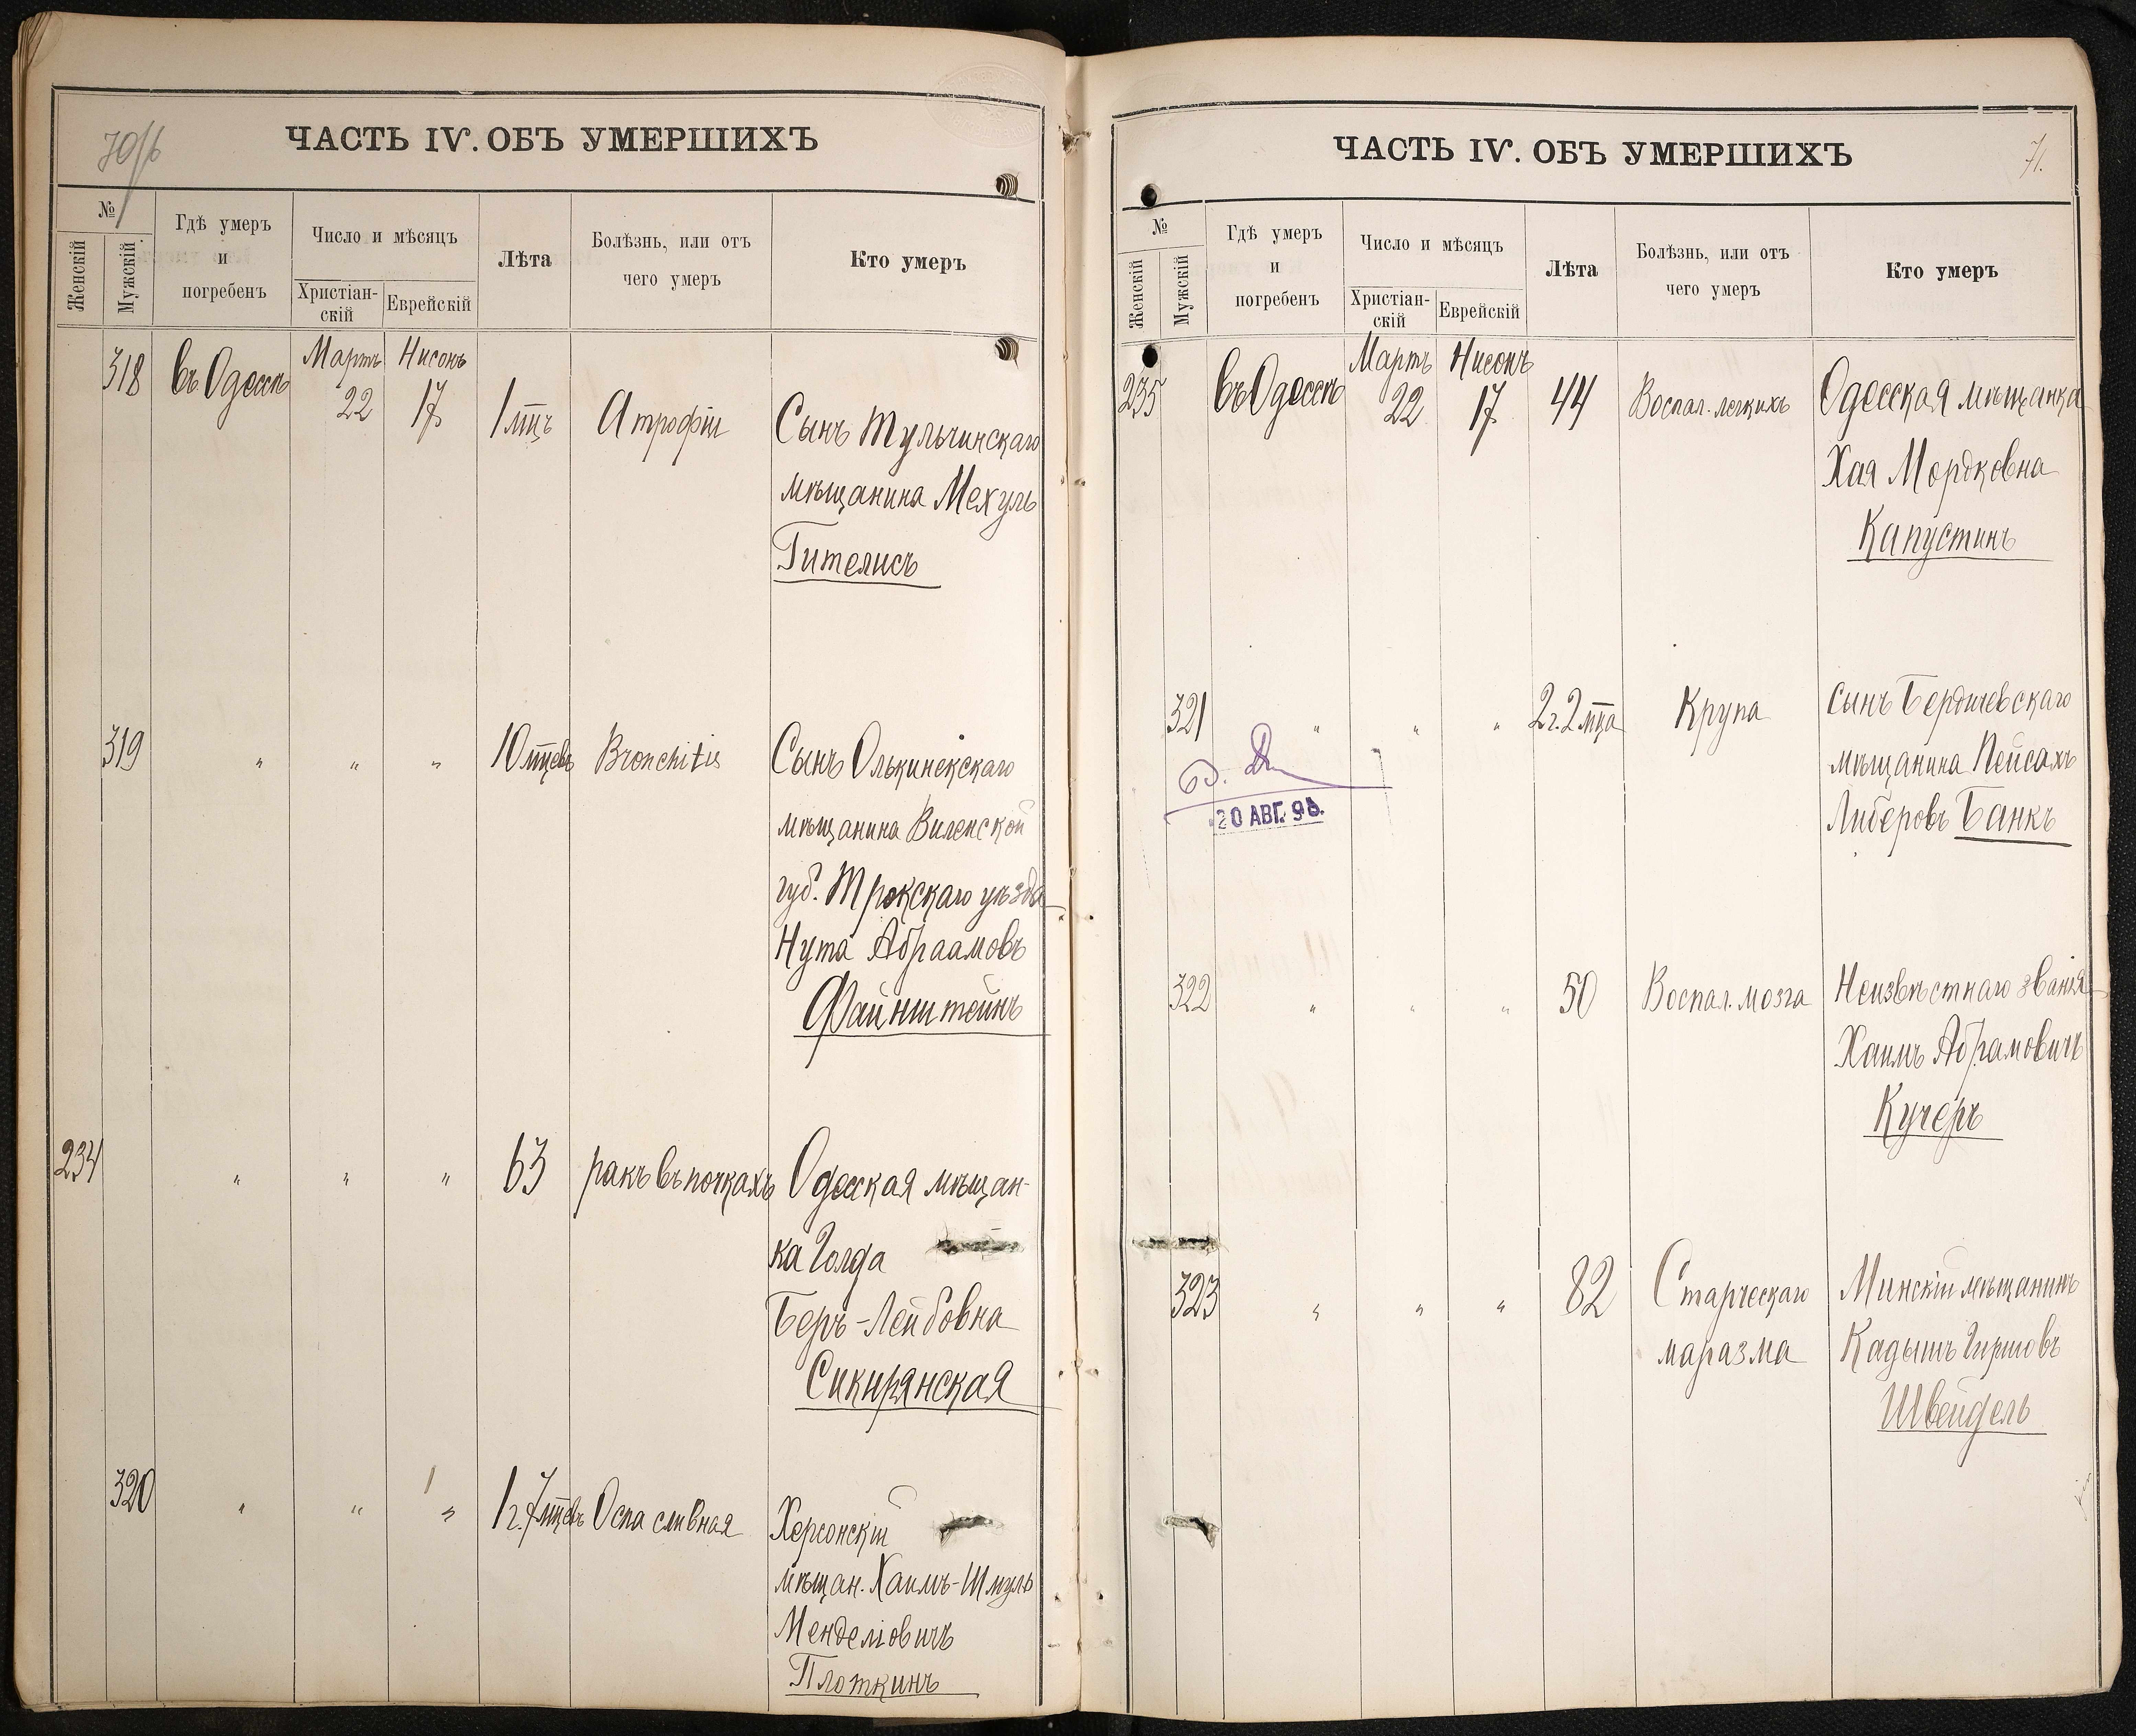 70/б
ЧАСТЬ IV. ОБЪ УМЕРШИХЪ
№
Женскій
Мужскій
Гдѣ умеръ
и
погребенъ
Число и мѣсяцъ
Христіан-
скій
Еврейскій
Лѣта
Болѣзнь, или отъ
чего умеръ
Кто умеръ
318
въ Одессѣ
Мартъ
22
Нисонъ
17
1 мц҃ъ
Атрофіи
Сынъ Тульчинскаго
мѣщанина Мехуль
Гителисъ
319
"
"
"
10 мцевъ
Bronchitis
Сынъ Олькиникскаго
мѣщанина Виленской
губ. Трокскаго уѣзда
Нута Абраамовъ
Файнштейнъ
234
"
"
"
63
ракъ въ почкахъ
Одесская мѣщан-
ка Голда
Беръ-Лейбовна
Сикирянская
320
"
"
"
1 г. 7 мцевъ
Оспа сливная
Херсонскій
мѣщан. Хаимъ-Шмуль
Менделіовичъ
Плоткинъ
ЧАСТЬ IV. ОБЪ УМЕРШИХЪ
71.
№
Женскій
Мужскій
Гдѣ умеръ
и
погребенъ
Число и мѣсяцъ
Христіан-
скій
Еврейскій
Лѣта
Болѣзнь, или отъ
чего умеръ
Кто умеръ
235
въ Одессѣ
Мартъ
22
Нисонъ
17
44
Воспал. легкихъ
Одесская мѣщанка
Хая Мордковна
Капустинъ
321
"
"
"
2 г. 2 мца
Крупа
Сынъ Бердичевскаго
мѣщанина Пейсахъ
Либеровъ Банкъ
20 АВГ. 98.
322
"
"
"
50
Воспал. мозга
Неизвѣстнаго званія
Хаимъ Абрамовичъ
Кучеръ
323
"
"
"
82
Старческаго
маразма
Минскій мѣщанинъ
Кадышъ Гиршовъ
Швейдель